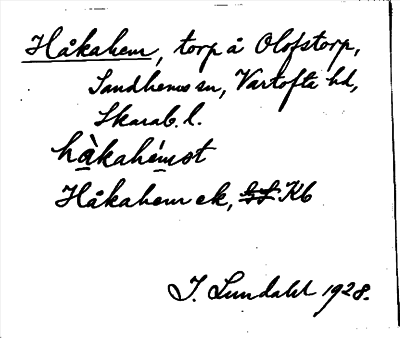 Håkahem, torp å Olofstorp,
Sandhems sn, Vartofta hd,
Skarab. l.
hàkahémot
Håkahem ek, Kb
J. Lundahl 1928.